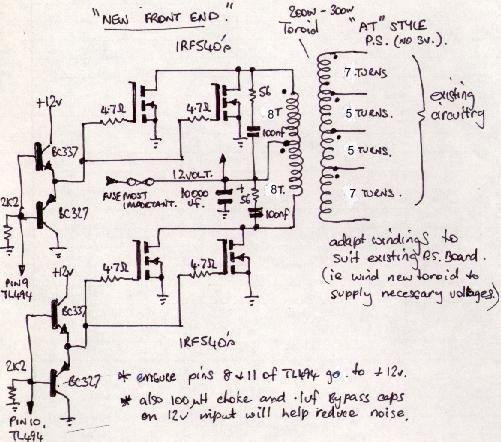 "NEW FRONT END."
200W - 300W
Toroid
"AT" STYLE
P.S. (NO 3V.)
IRF540's
7 TURNS
+12V
4.7Ω
4.7Ω
56
100nf
8T
5 TURNS.
existing
circuitry
BC337
12VOLT.
5 TURNS.
2K2
BC327
FUSE MOST
IMPORTANT.
10000
uf.
+
56
100nf
8T.
7 TURNS.
PIN9
TL494
+12v
4.7Ω
4.7Ω
adapt windings to
suit existing P.S. Board.
(ie wind new toroid to
supply necessary voltages)
BC337
IRF540's
2K2
BC327
* ensure pins 8 & 11 of TL494 go to +12v.
* also 100µH choke and .1uf Bypass caps
on 12v input will help reduce noise.
PIN10,
TL494